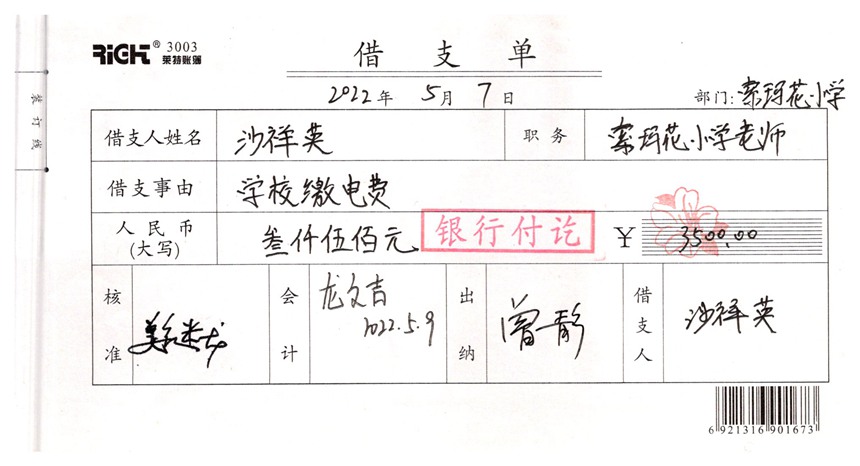 RiGHT® 3003
莱特账簿
借支单
2022年 5月 7日 部门:索玛花小学
装订线
借支人姓名 沙祥英 职务 索玛花小学老师
借支事由 学校缴电费
人民币(大写) 叁仟伍佰元 银行付讫 ¥ 3500.00
核准 会计 龙文吉 2022.5.9 出纳 曾静 借支人 沙祥英
6 921316 901673